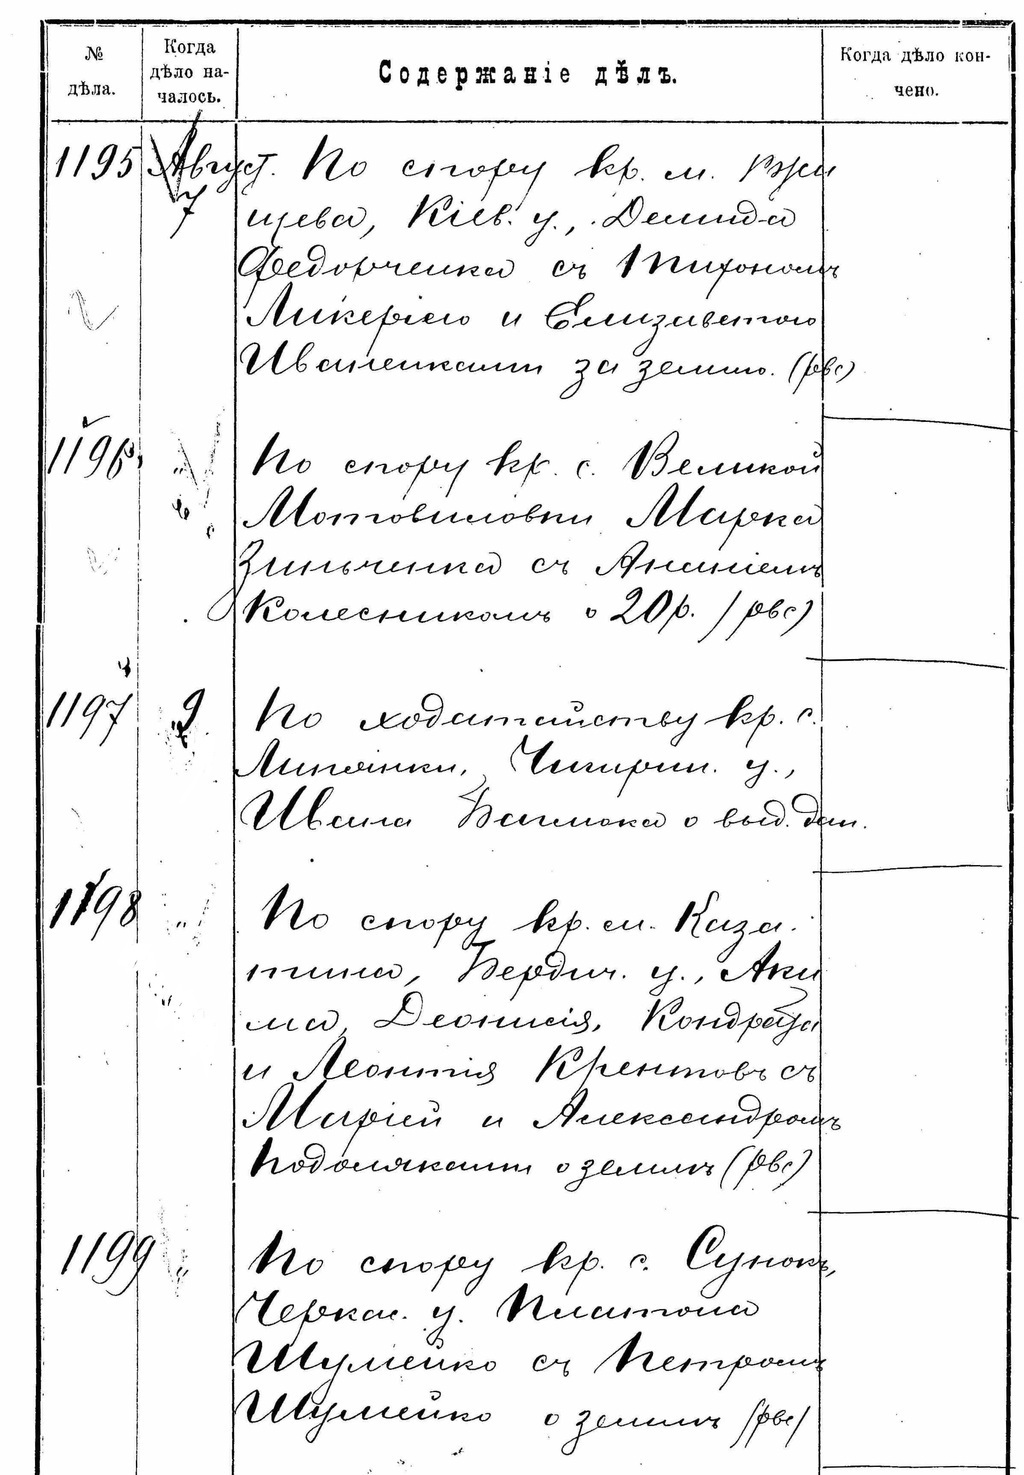 № дѣла.
Когда дѣло началось.
Содержаніе дѣлъ.
Когда дѣло кончено.
1195 Август. 7 По спору кр. м. Ржи
щева, Кіев. у., Демида
Федорченка съ Тихономъ
Ликеріею и Елизаветою
Иваненками за землю. (рвс)
1196 " По спору кр. с. Великой
Мотовиловки Марка
Зинченка съ Ананіемъ
Колесникомъ о 20р. (рвс)
1197 9 По ходатайству кр. с.
Липянки, Чигирин. у.,
Ивана Багмока о выд. дан.
1198 " По спору кр. м. Каза
тина, Бердич. у., Аки
ма, Деонисія, Кондрата
и Леонтія Крентовъ съ
Маріей и Александромъ
Подоляками о землѣ (рвс)
1199 " По спору кр. с. Сунокъ,
Черкас. у. Платона
Шумейко съ Петромъ
Шумейко о землѣ (рвс)